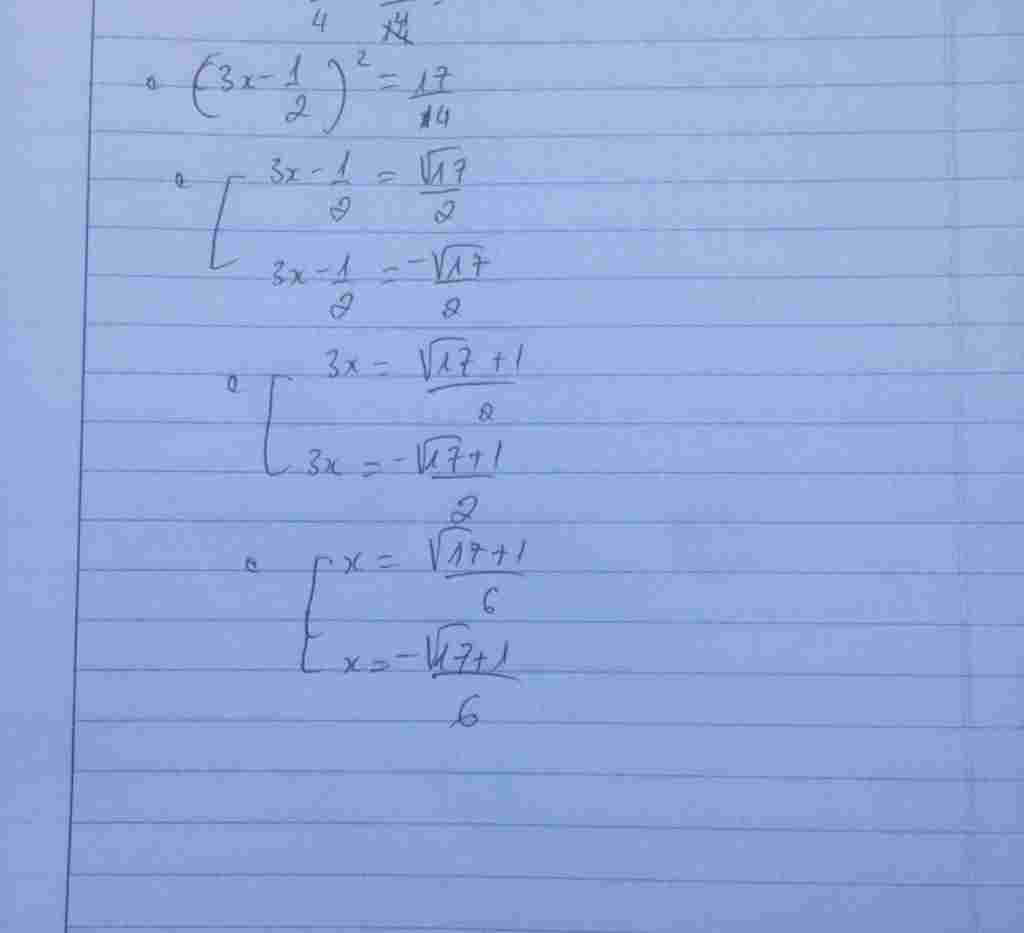 4 4
(3x - 1/2)² = 17/4
3x - 1/2 = √17/2
3x - 1/2 = -√17/2
3x = (√17 + 1)/2
3x = (-√17 + 1)/2
x = (√17 + 1)/6
x = (-√17 + 1)/6